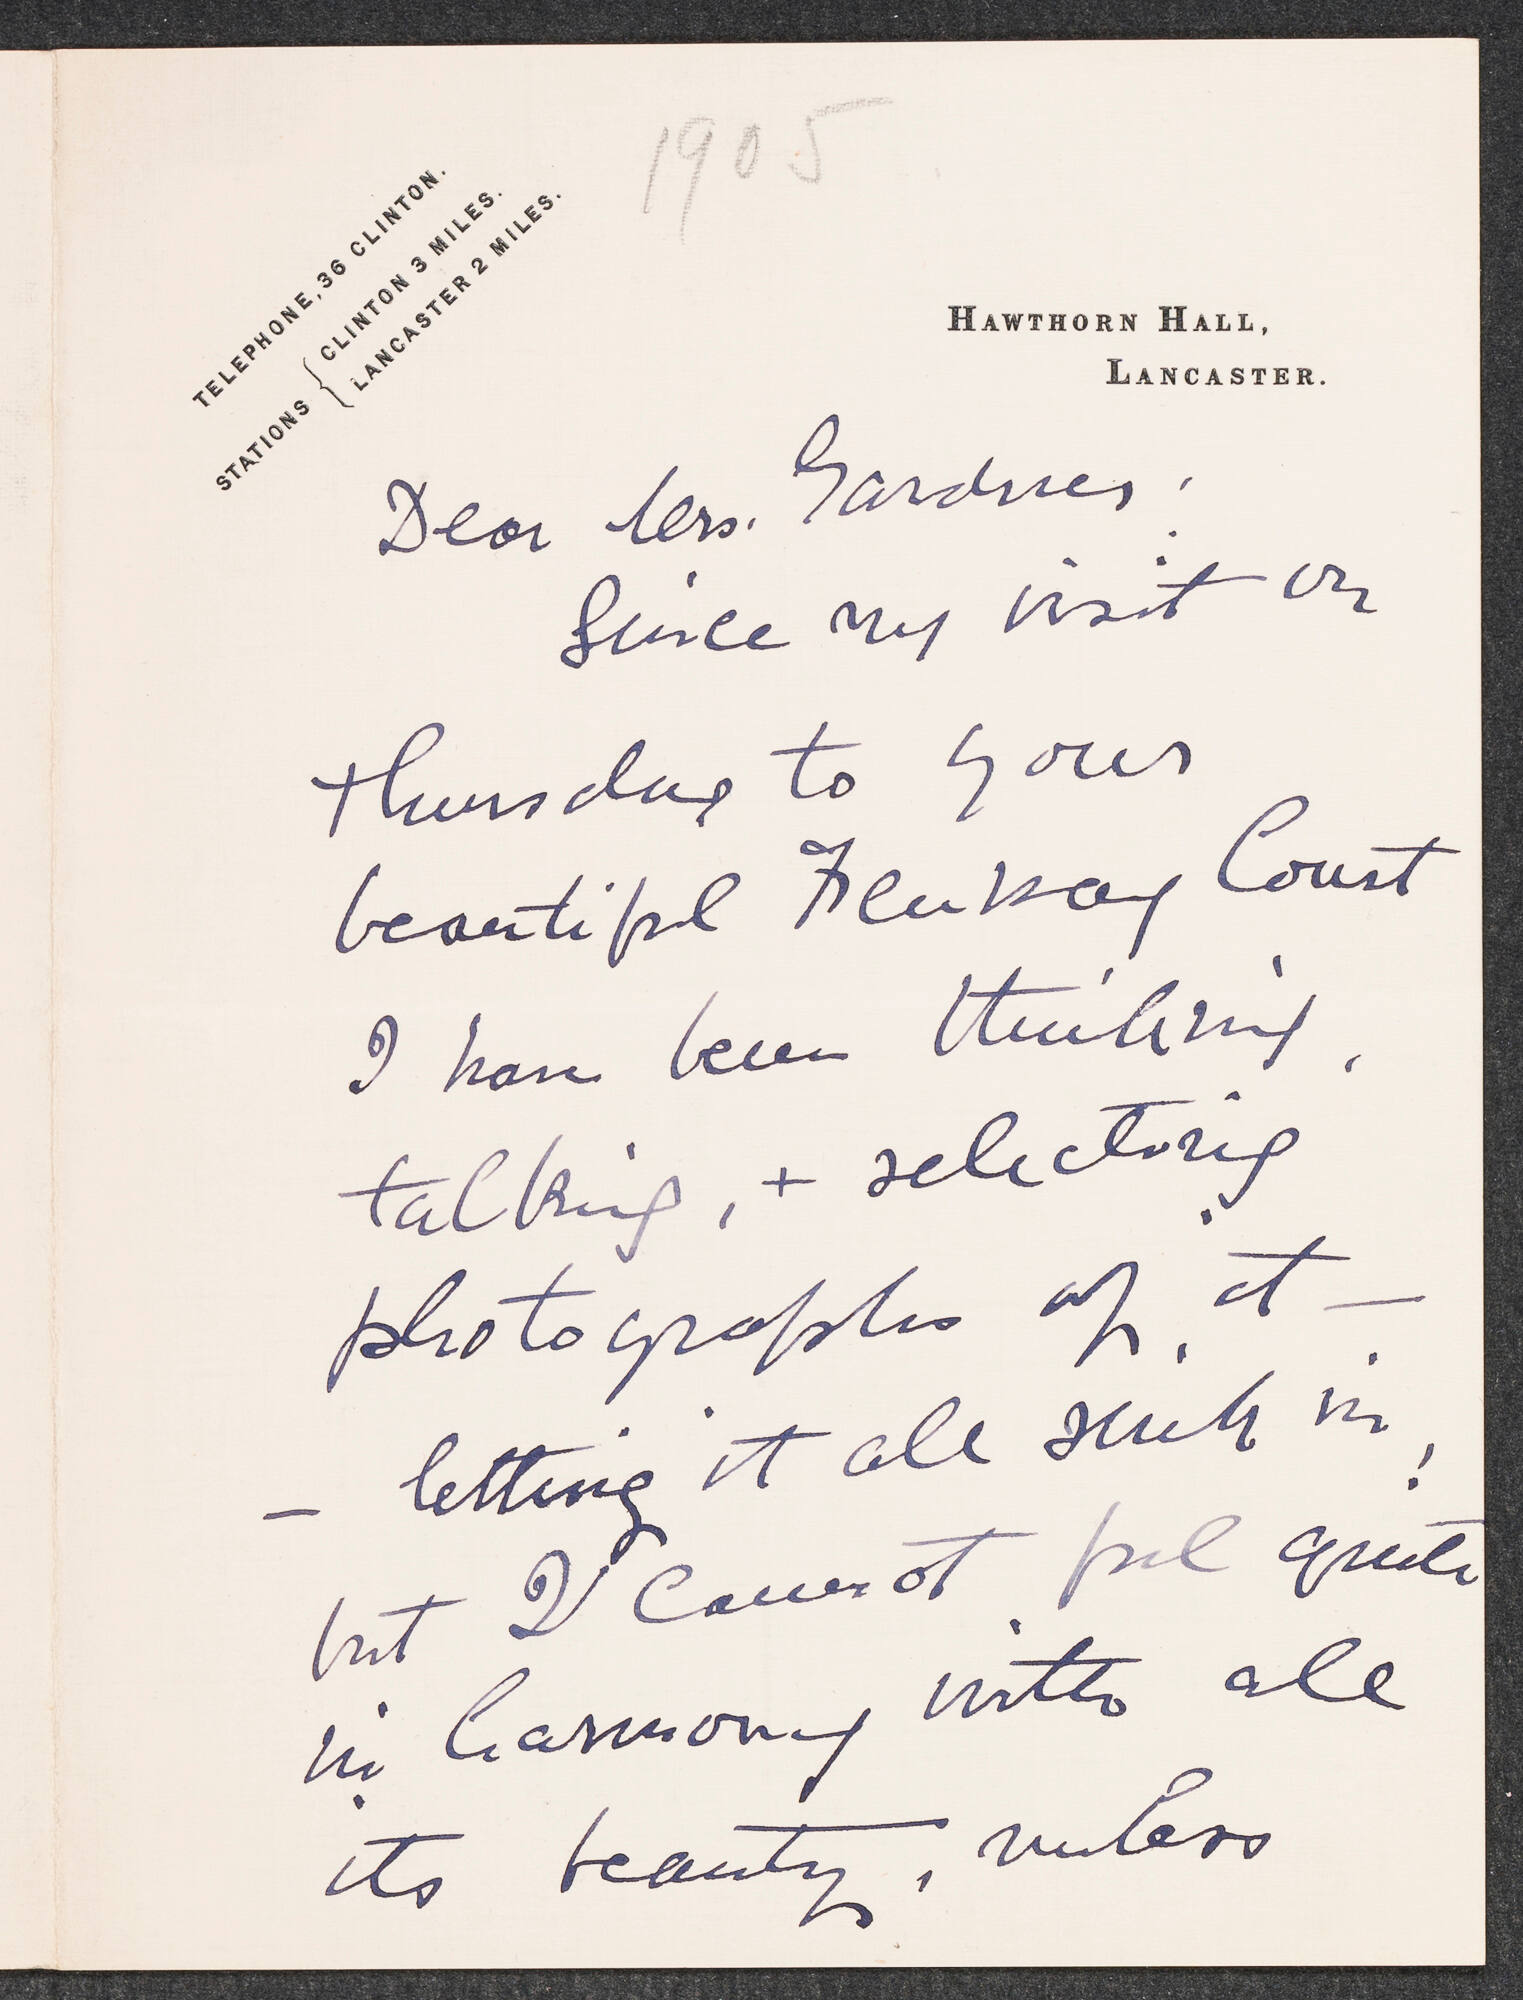 1905
TELEPHONE, 36 CLINTON.
STATIONS { CLINTON 3 MILES.
LANCASTER 2 MILES.
HAWTHORN HALL,
LANCASTER.
Dear Mrs. Gardner:
Since my visit on
Thursday to your
beautiful Fenway Court
I have been thinking,
talking, + selecting
photographs of it —
— letting it all sink in,
but I cannot feel quite
in harmony with all
its beauty, unless